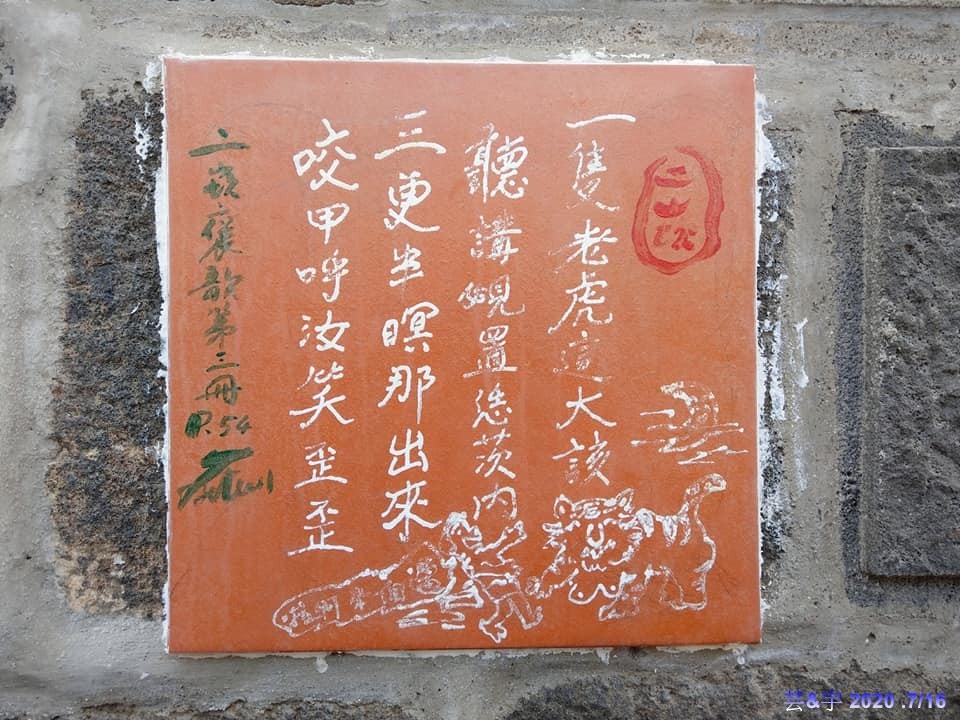 一隻老虎這大該
聽講覕置恁茨内
三更半暝那出來
咬甲呼汝笑歪歪
二崁褒歌第三冊
P.54
芸&宇 2020 .7/16